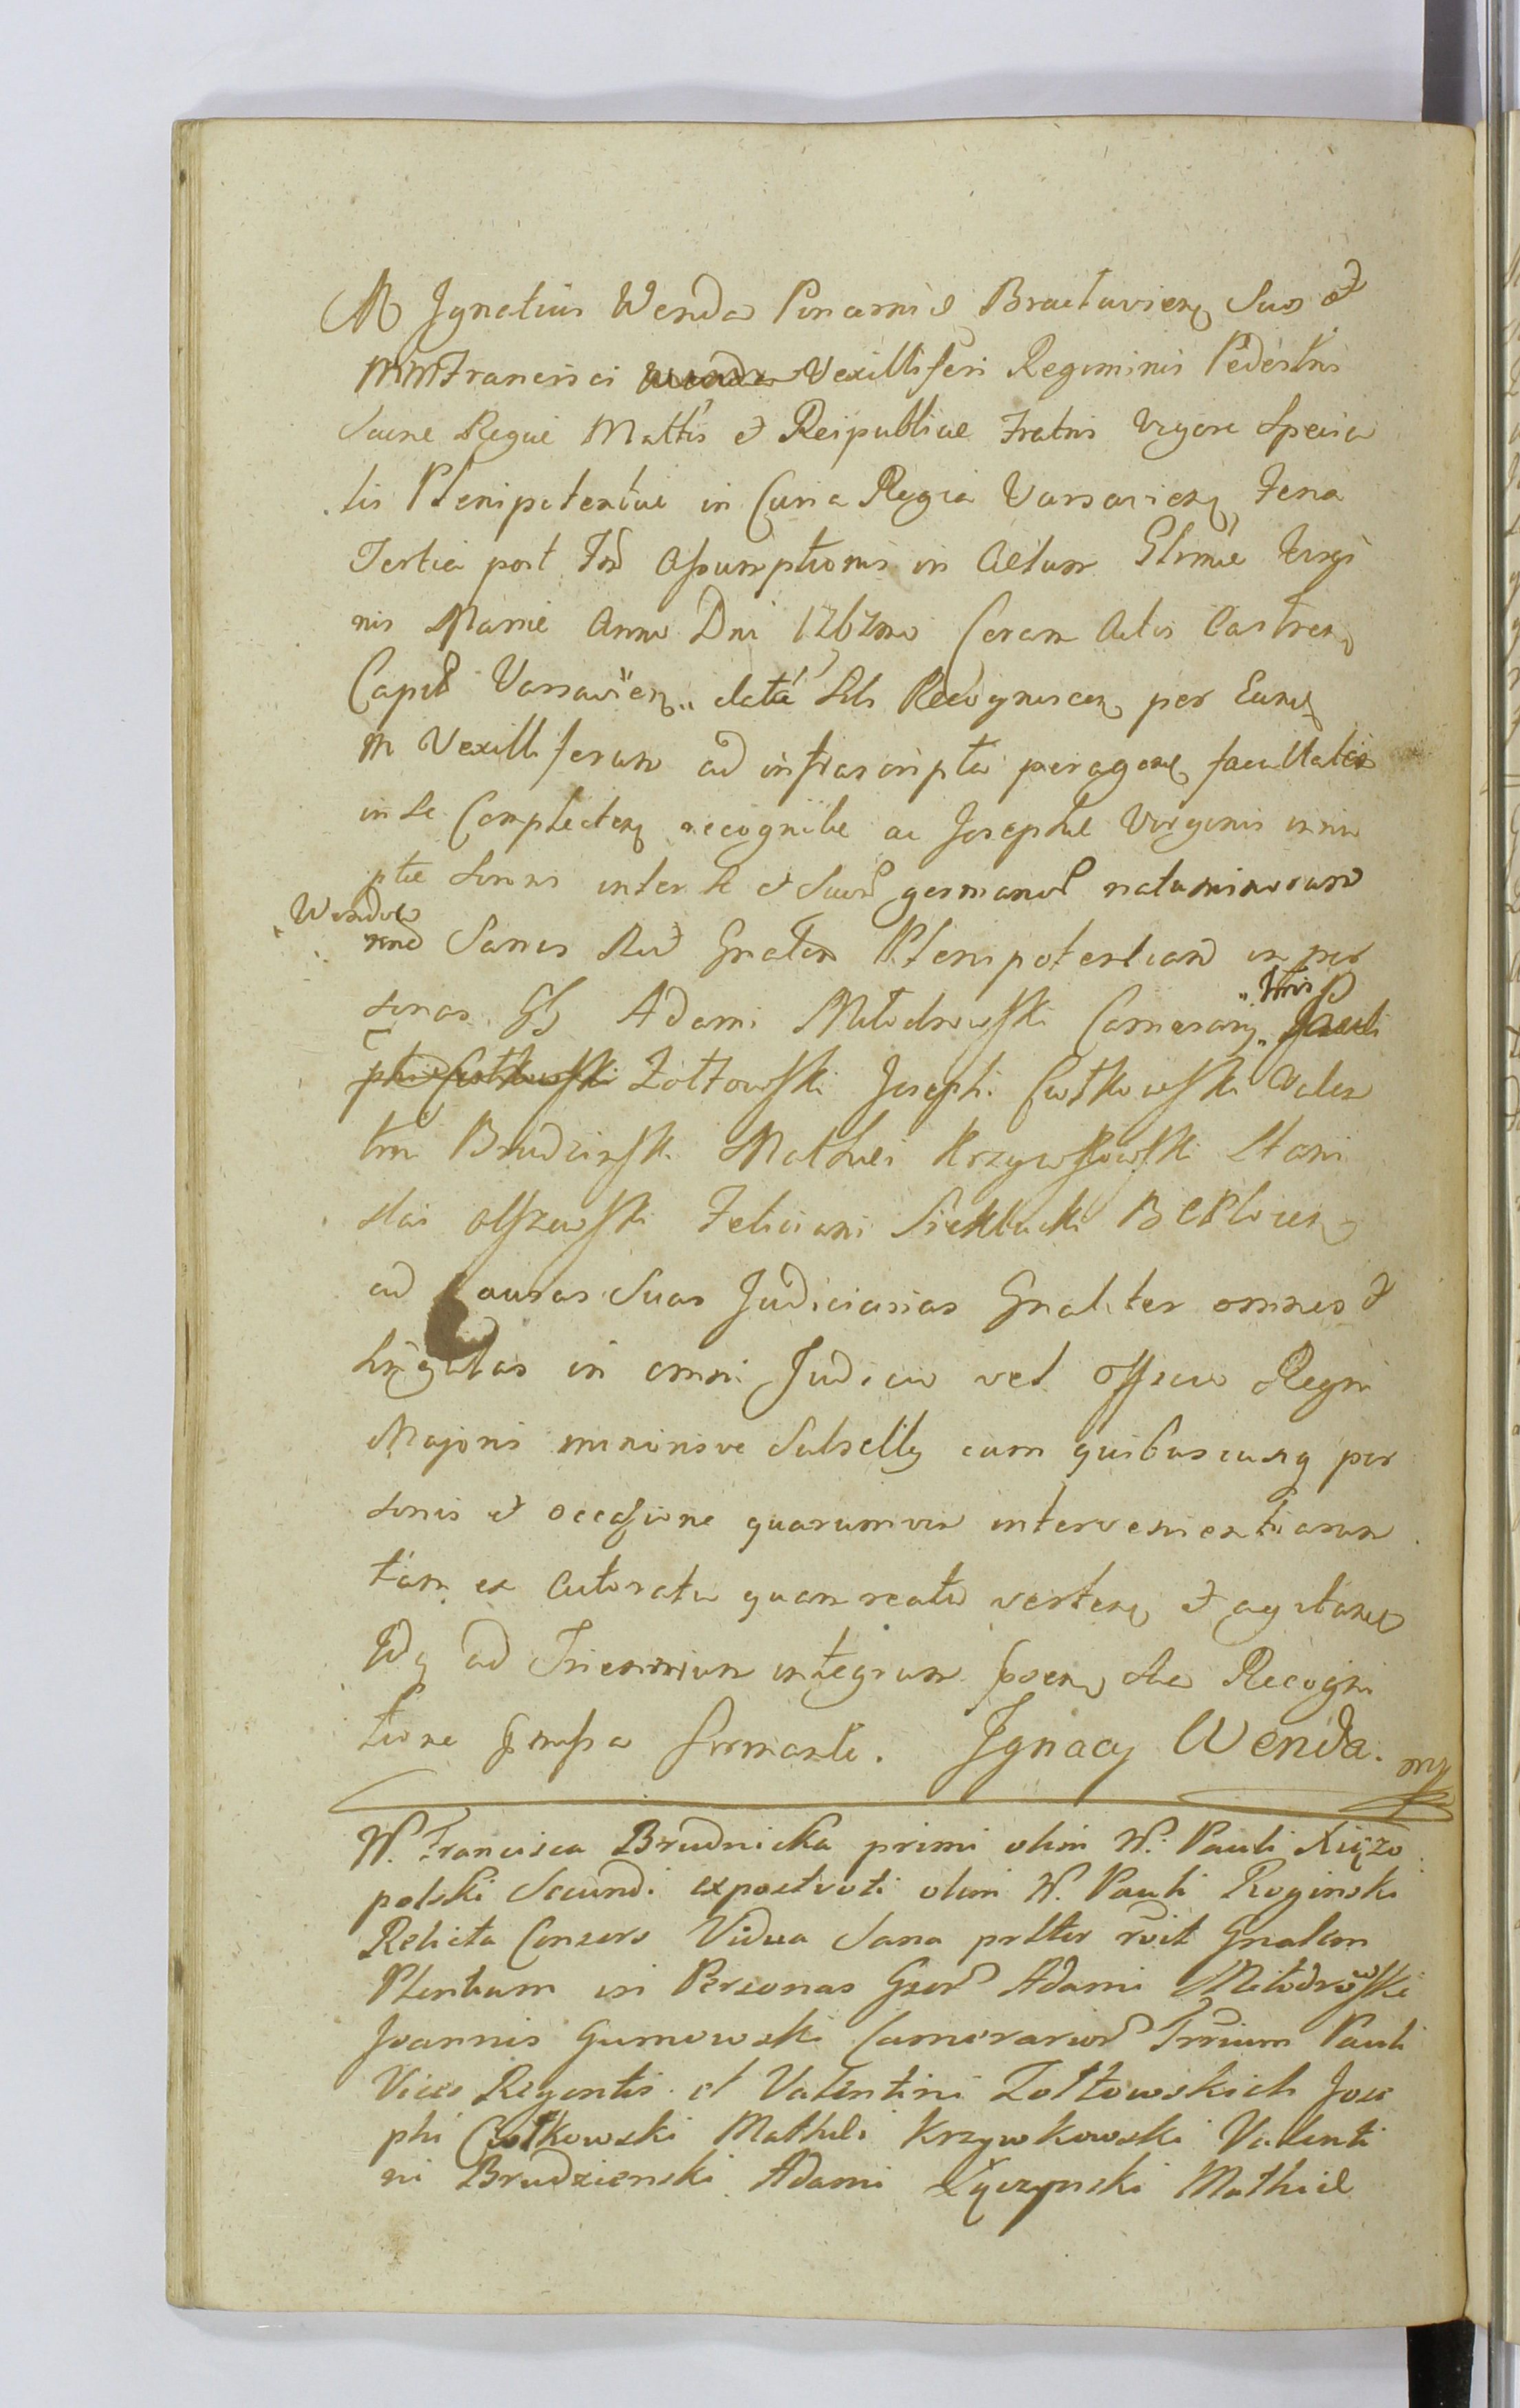 M Ignatius Wenda Pincernid Bractaviens Suo et
MM Francisci Vexilliferi Regiminis Pedestris
Sacrae Regiae Mattis et Reipublicae Fratris vigore Specia
lis Plenipotentiae in Curia Regia Varsaviens Feria
Tertia post Assumptionis in Caelum Virgi
nis Mariae Anno Dni 1767mo Coram Actis Castren
Capit Varsaviens data Recognoscen per Eund
M Vexilliferum ad infrascripta peragend facultatem
in se Complecten recognitae ac Josephae Virginis innu
ptae Sororis inter se et germanor natu minorum
Wendow
noe Sanus Rcd Gnalem Plenipotentiam in per
sonas GG Adami Młodnowski Camerarij
phi Cwtkowski Zołtowski Josephi Cwtkowski Valen
tini Brudzinski Mathei Krzywkowski Stani
slai Olszewski Feliciani Sieklucki
ad Causas Suas Judiciarias Gnaliter omnes et
singulas in omni Judicio vel officio Regni
Majoris minorisve Subsellij cum quibuscunq per
sonis et occasione quarumvis intervenientiarum
tam ex actoratu quam reatu verten et agitand
Idq ad Triennium integrum sua Recogni
tione firmante. Jgnacy Wenda. mp
W. Francisca Brudnicka primi olim W. Pauli Xięzo
polski Secundi expost voti olim W. Pauli Roginski
Relicta Consors Vidua Sana prltter rcit Gnalem
Plentiam in Personas Gsor Adami Młodnowski
Joannis Gumowski Camerarior Trrium Pauli
Vices Regentis et Valentini Zołtowskich Jose
phi Cwtkowski Mathei Krzywkowski Valenti
ni Brudzienski Adami Łączynski Mathiae